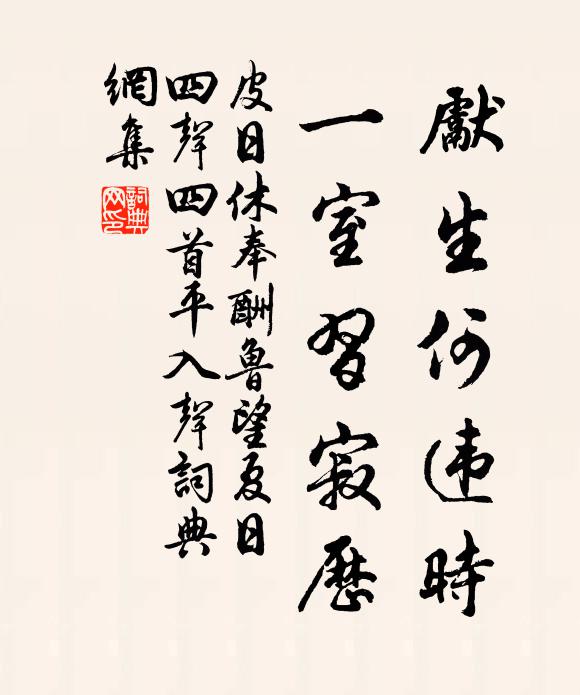 獻生何违時
一室習寂歷
皮日休奉酬魯望夏日
四聲四首平入聲詞典
網集
詞典网印